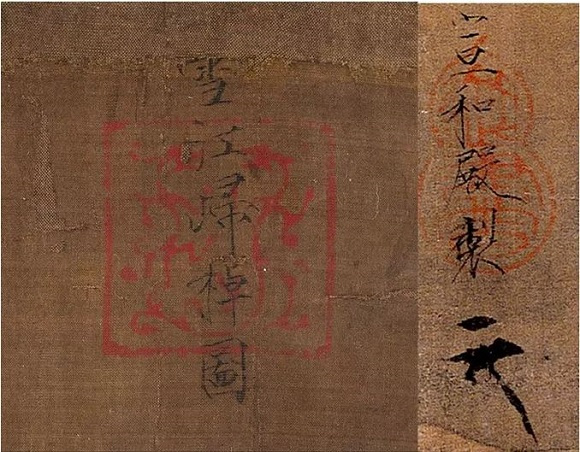 雪江歸棹圖
宣和殿製